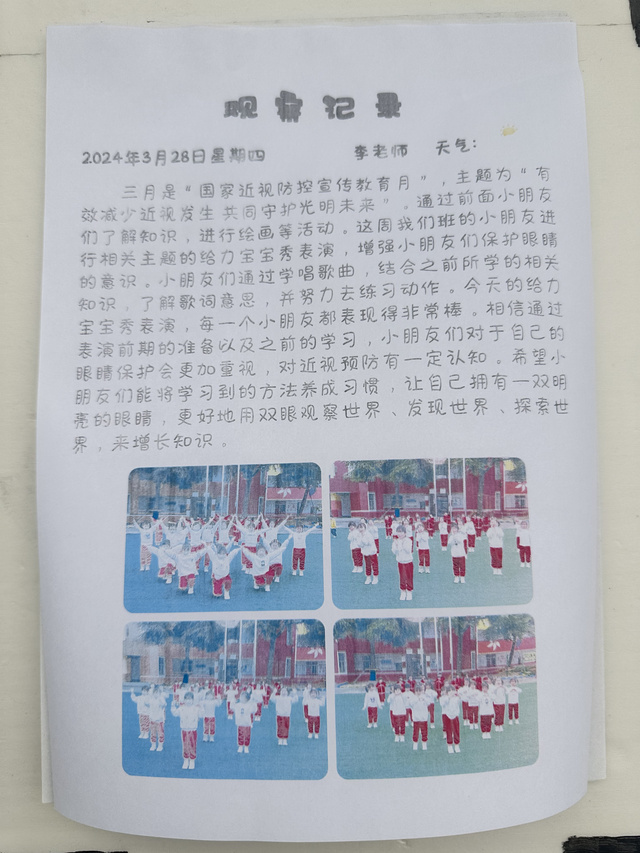 观察记录
2024年3月28日星期四 李老师 天气：
三月是“国家近视防控宣传教育月”，主题为“有
效减少近视发生 共同守护光明未来”。通过前面小朋友
们了解知识，进行绘画等活动。这周我们班的小朋友进
行相关主题的给力宝宝秀表演，增强小朋友们保护眼睛
的意识。小朋友们通过学唱歌曲，结合之前所学的相关
知识，了解歌词意思，并努力去练习动作。今天的给力
宝宝秀表演，每一个小朋友都表现得非常棒。相信通过
表演前期的准备以及之前的学习，小朋友们对于自己的
眼睛保护会更加重视，对近视预防有一定认知。希望小
朋友们能将学习到的方法养成习惯，让自己拥有一双明
亮的眼睛，更好地用双眼观察世界、发现世界、探索世
界，来增长知识。